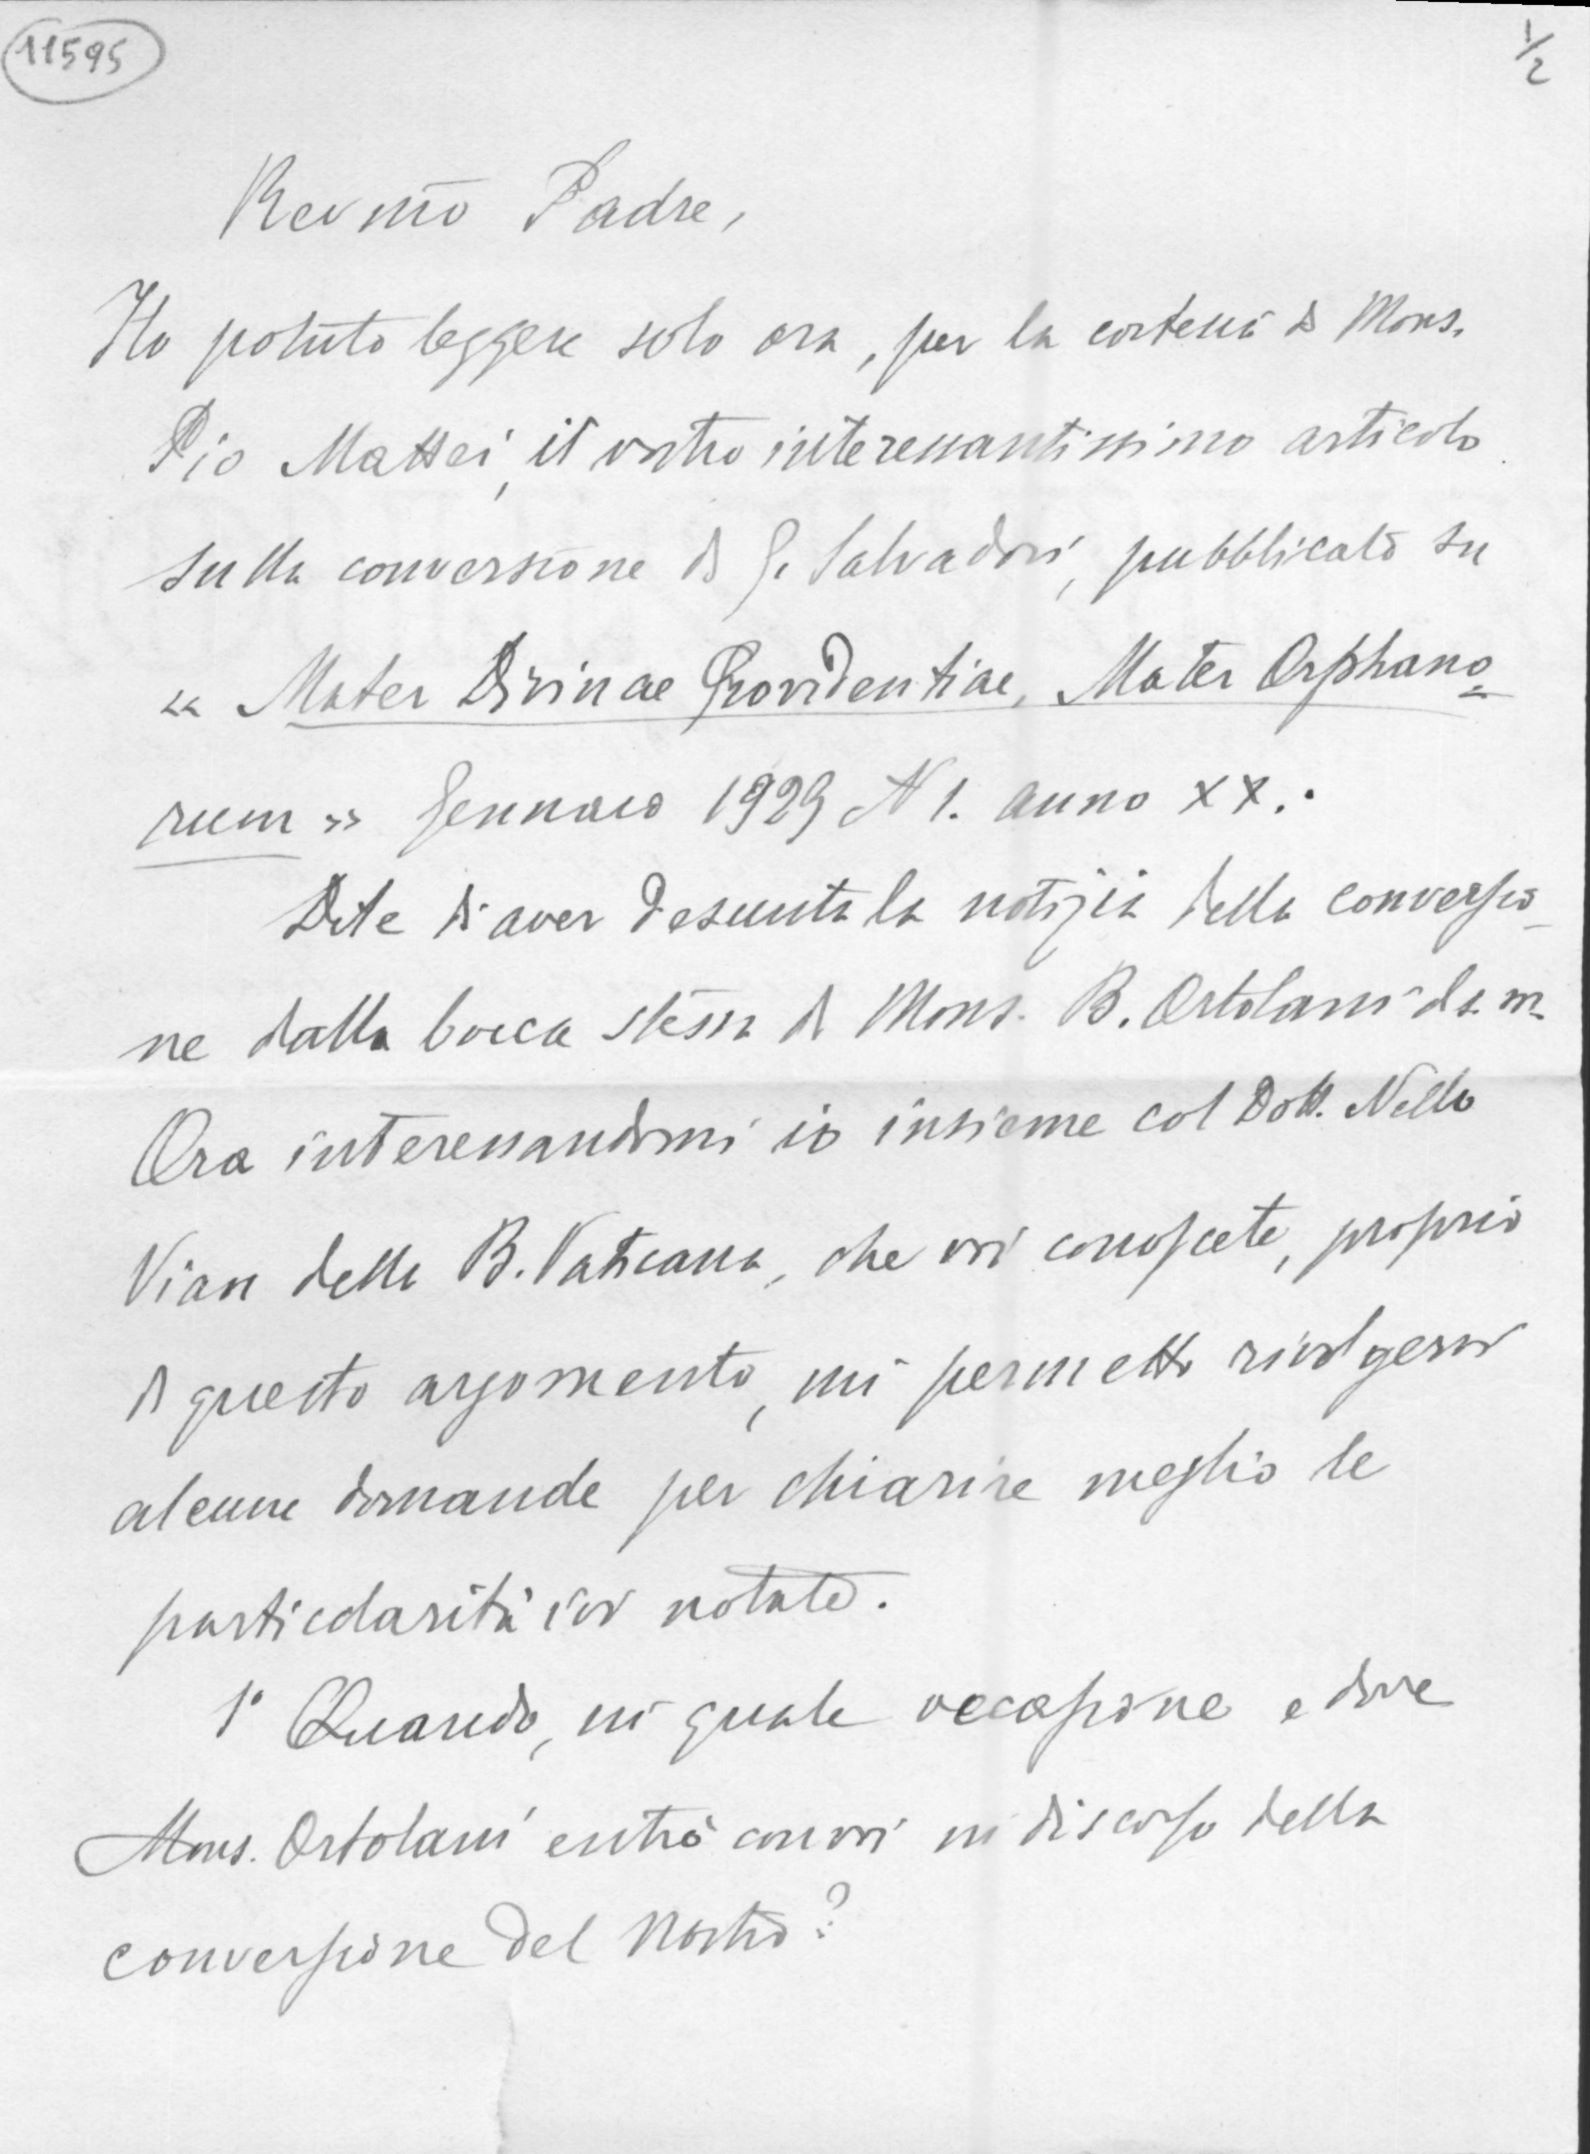 11595
1/2
Revmo Padre,
Ho potuto leggere solo ora, per la cortesia di Mons.
Pio Mattei, il vostro interessantissimo articolo
sulla conversione di G. Salvadori, pubblicato su
« Mater Divinae Providentiae, Mater Orphano=
rum » Gennaio 1929 N 1. anno XX.
Dite di aver desunta la notizia della conversio-
ne dalla bocca stessa di Mons. B. Ortolani d. s. m.
Ora interessandomi io insieme col Dott. Nello
Vian della B. Vaticana, che voi conoscete, proprio
di questo argomento, mi permetto rivolgervi
alcune domande per chiarire meglio le
particolarità ivi notate.
1° Quando, in quale occasione e dove
Mons. Ortolani entrò con voi in discorso della
conversione del Nostro?